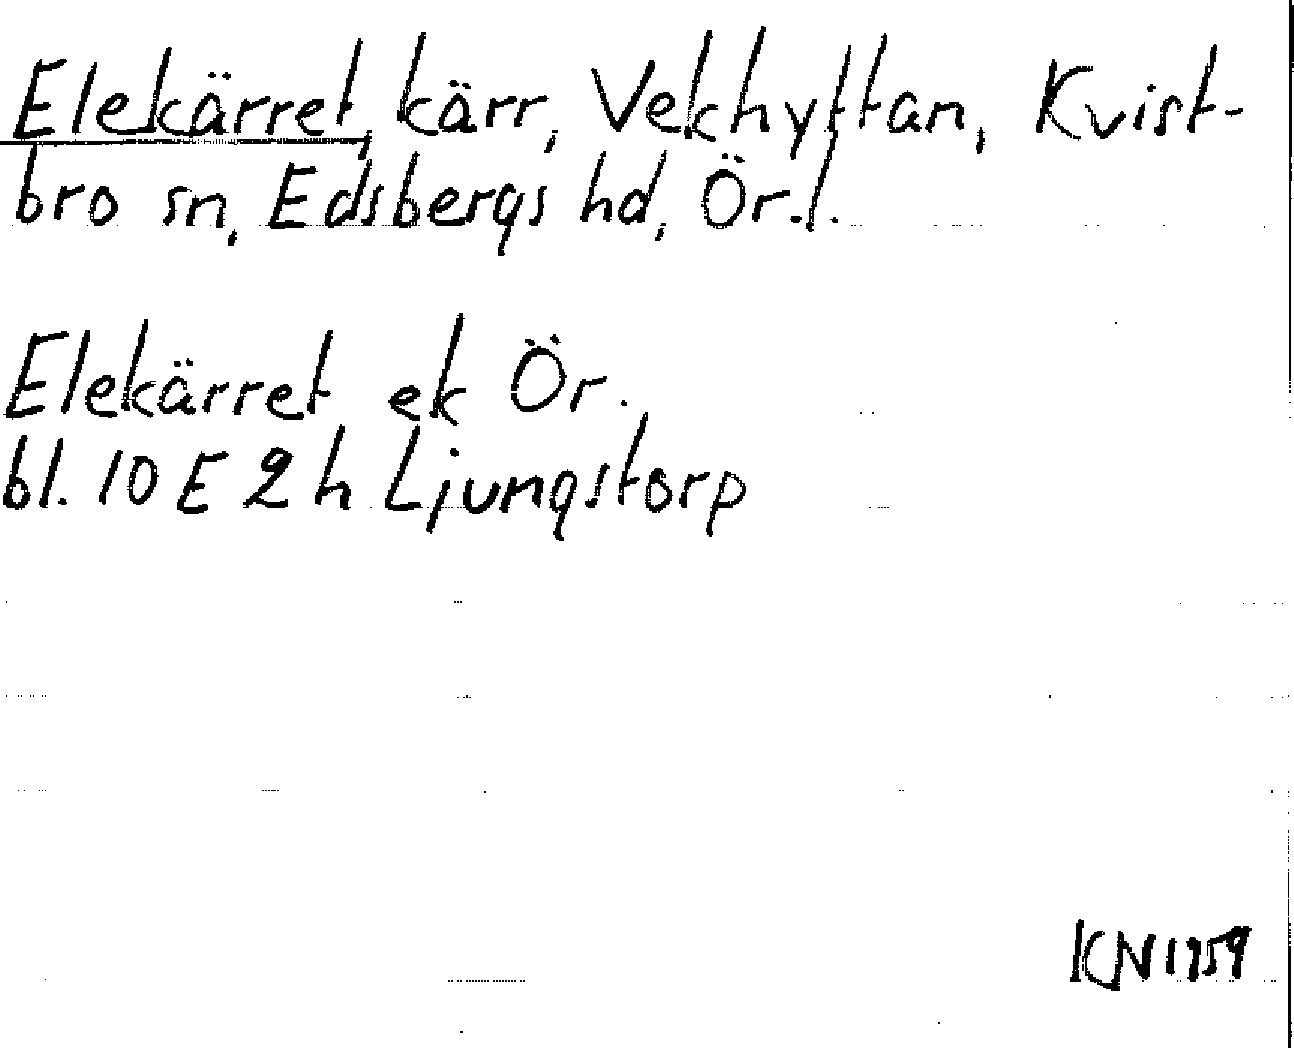 Elekärret, kärr, Vekhyttan, Kvist-
bro sn, Edsbergs hd, Ör.l.
Elekärret ek Ör.
bl. 10 E 2 h Ljungstorp
KN 1959